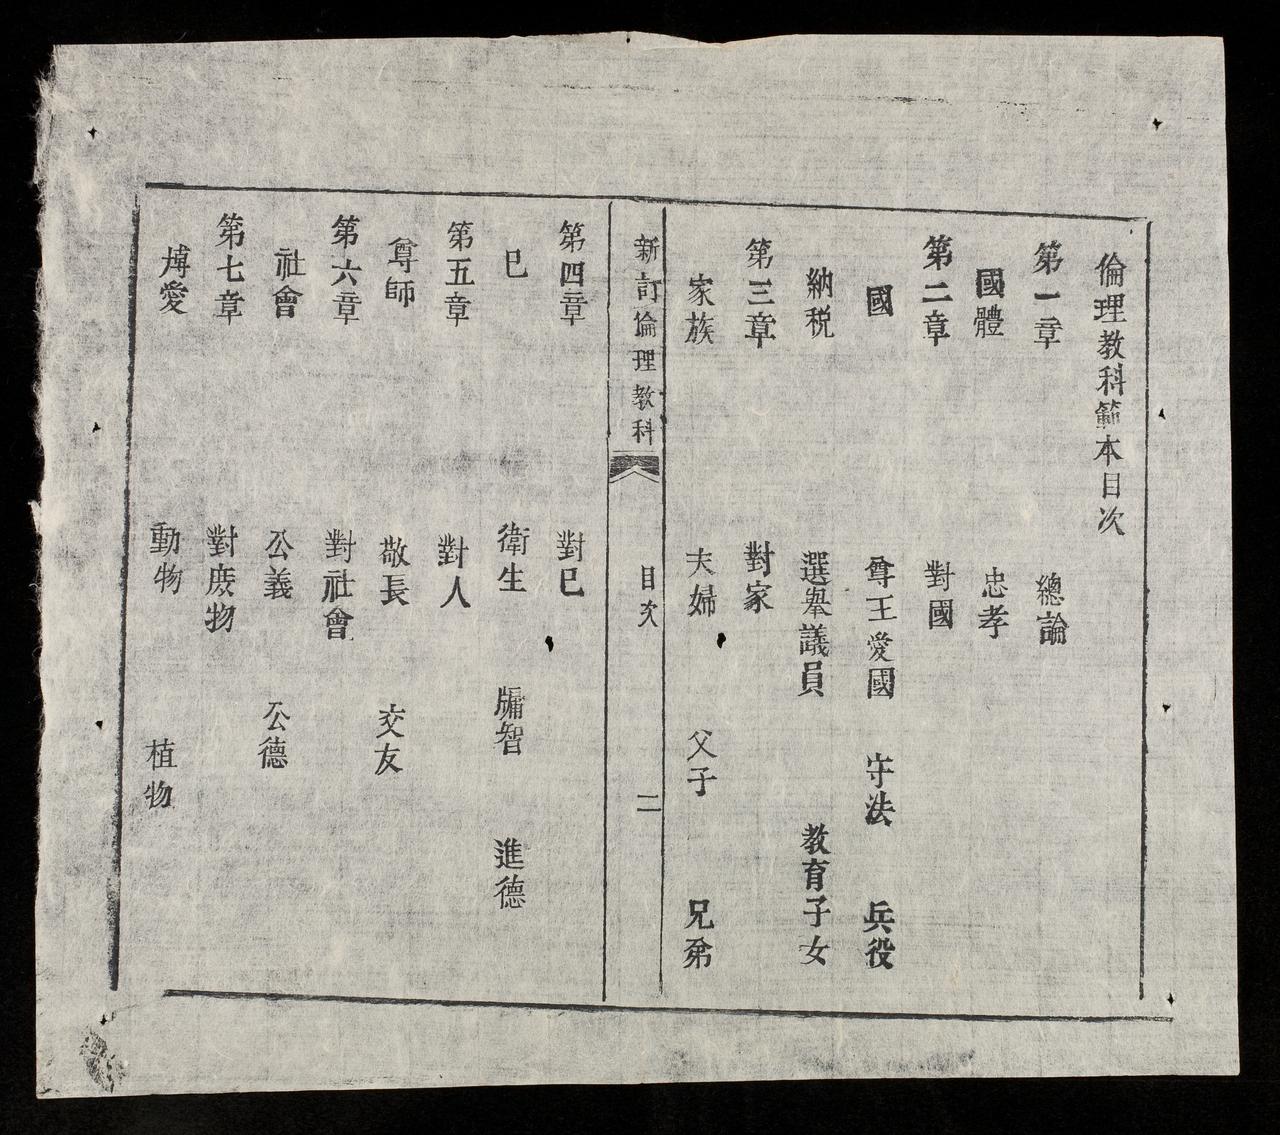 倫理教科範本目次
第一章 總論
國體 忠孝
第二章 對國
國 尊王愛國 守法 兵役
納税 選舉議員 教育子女
第三章 對家
家族 夫婦 父子 兄弟
新訂倫理教科 目次 二
第四章 對已
已 衛生 牗智 進德
第五章 對人
尊師 敬長 交友
第六章 對社會
社會 公義 公德
第七章 對庶物
博愛 動物 植物